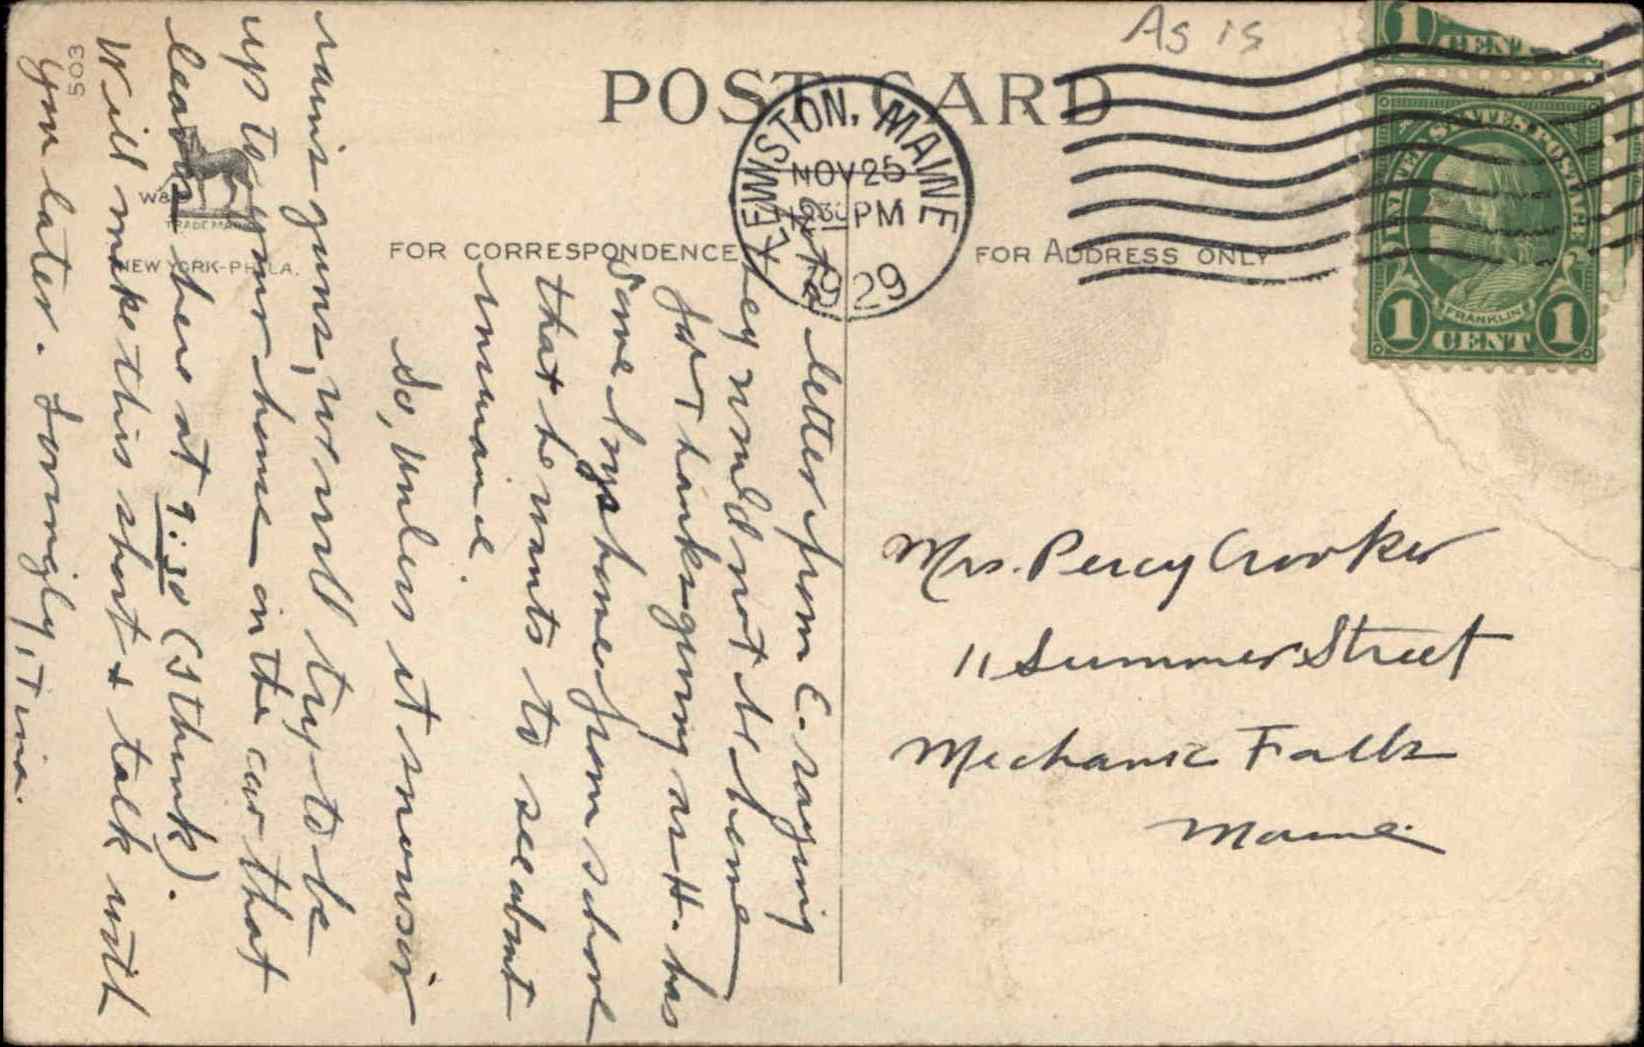 As is
POST CARD
1 CENT
LEWISTON, MAINE
NOV 25
1230 PM
1929
UNITED STATES POSTAGE
FRANKLIN
1 CENT 1
FOR CORRESPONDENCE
FOR ADDRESS ONLY
503
W&
TRADE MARK
NEW YORK-PHILA.
letter from C. saying
they would not be home
for Thanksgiving as H. has
some boys home from school
that he wants to see about
insurance.
So, unless it snows or
rains guns, we will try to be
up to your house on the car that
leaves here at 9:30 (I think).
Will make this short & talk with
you later. Lovingly, Tina.
Mrs. Percy Crooker
11 Summer Street
Mechanic Falls
Maine